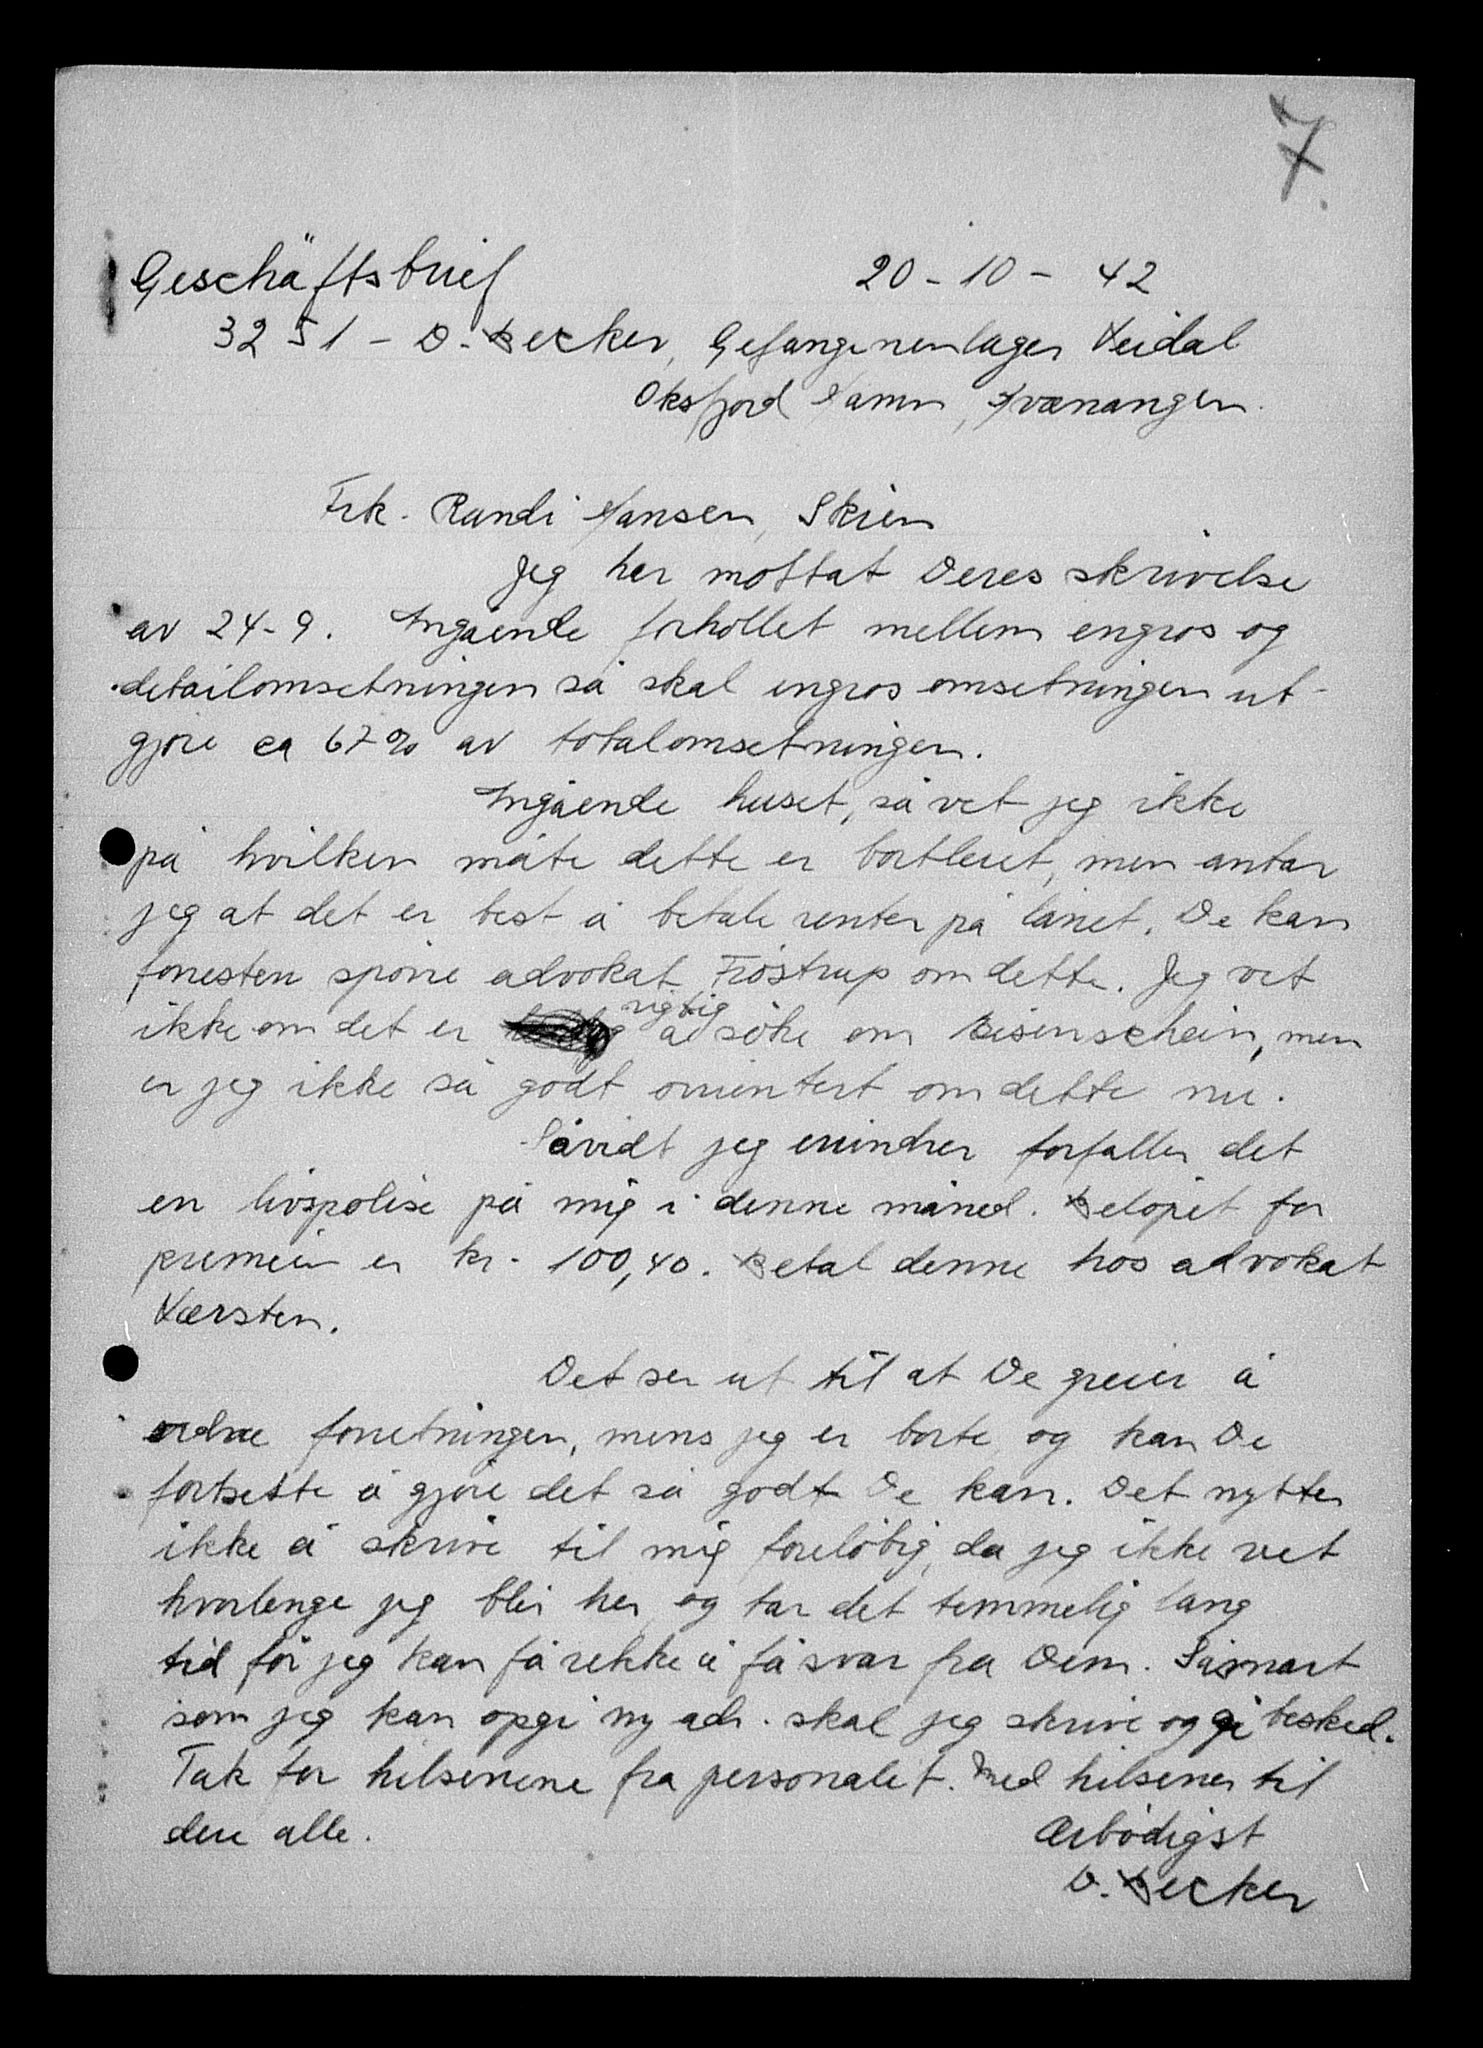 7.
Geschäftsbrief 20-10-42
3251 - D. Becker, Gefangenenlager Veidal
Oksfjord Hamn, Kvænangen.
Frk. Randi Hansen, Skien
Jeg her mottat Deres skrivelse
av 24-9. Angående forhollet mellem engros og
detailomsetningen så skal engrosomsetningen ut-
gjøre ca 67% av totalomsetningen.
Angående huset, så vet jeg ikke
på hvilken måte dette er bortleiet, men antar
jeg at det er best å betale renter på lånet. De kan
foresten spørre advokat Frøstrup om dette. Jeg vet
ikke om det er rigtig å søke om Reisenschein, men
er jeg ikke så godt orientert om dette nu.
Såvidt jeg erindrer forfaller det
en livspolise på mig i denne måned. Beløpet for
premien er kr. 100,40. Betal denne hos advokat
Værsten.
Det ser ut til at De greier å
ordne forretningen, mens jeg er borte og kan De
fortsette å gjøre det så godt De kan. Det nytter
ikke å skrive til mig foreløbig, da jeg ikke vet
hvorlenge jeg blir her, og tar det temmelig lang
tid før jeg kan få rekke å få svar fra Dem. Såsnart
som jeg kan opgi ny adr. skal jeg skrive og gi besked.
Tak for hilsenene fra personalet. Med hilsener til
dere alle. Ærbødigst
D. Becker